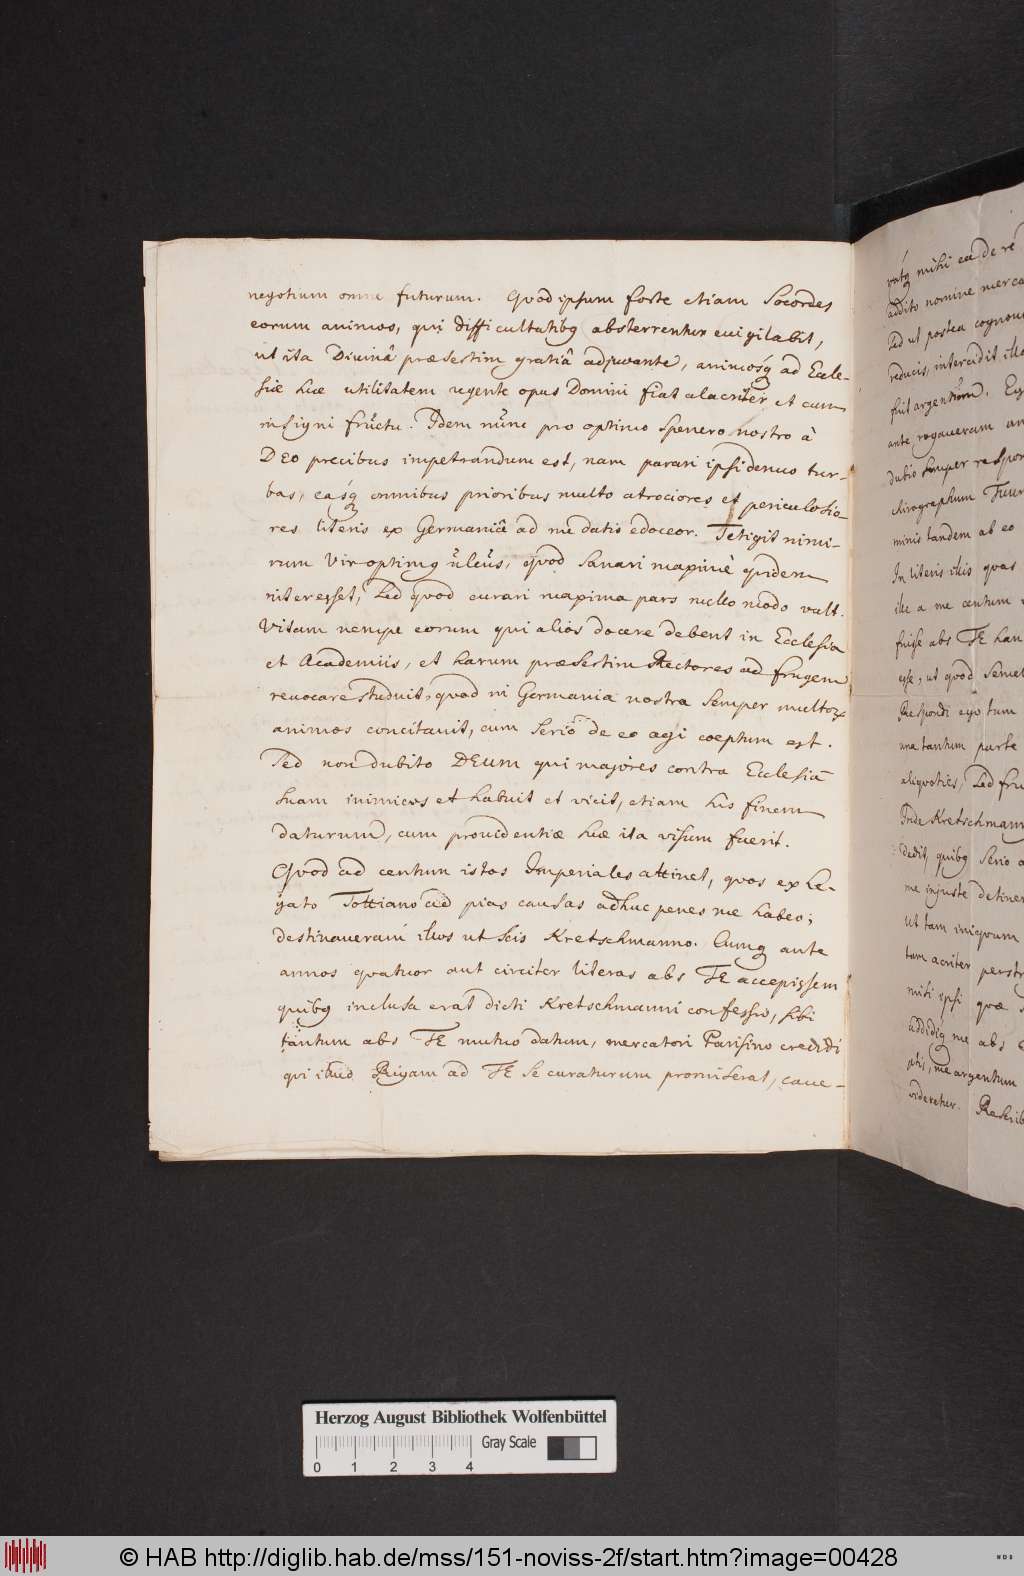 negotium omne futurum. Quod ipsum forte etiam socordes
eorum animos, qui difficultatibq absterrentur evigilabit,
ut ita Divinâ præsertim gratiâ adjuvante, animosq ad Eccle-
siæ suæ utilitatem regente opus Domini fiat alacriter et cum
insigni fructu. Idem nunc pro optimo Spenero nostro à
DEO precibus impetrandum est, nam parari ipsi denuo tur-
bas, easq omnibus prioribus multo atrociores et periculosio-
res literis ex Germaniâ ad me datis edoceor. Tetigit nimi-
rum Vir optimq ulcus, quod sanari maximè quidem
interesset, sed quod curari maxima pars nullo modo vult.
Vitam nempe eorum qui alios docere debent in Ecclesia
et Academiis, et harum præsertim Rectores ad frugem
revocare studuit, quod in Germania nostra semper multoꝝ
animos concitavit, cum serio de eo agi coeptum est.
Sed non dubito DEUM qui majores contra Ecclesiā
suam inimicos et habuit et vicit, etiam his finem
daturum, cum providentiæ suæ ita visum fuerit.
Quod ad centum istos Imperiales attinet, quos ex Le-
gato Tottiano ad pias causas adhuc penes me habeo;
destinaveram illos ut scis Kretschmanno. Cumq ante
annos quatuor aut circiter literas abs TE accepissem
quibq inclusa erat dicti Kretschmanni confessio, sibi
tantum abs TE mutuo datum, mercatori Parisino credidi
qui illud Rigam ad TE se curaturum promiserat, cave-
mihi ea de re
addito nomine merca
sed ut postea cognov
reducis, intercidit illa
fuit argentum. Eg
ante, rogaveram
dubio semper respon
chirographum
minis tandem ab eo
In literis illis quas
ille a me centum
fuisse abs TE hau
esse, ut quod semel
Respondi ego tum
una tantum parte
aliquoties, sed fru
Inde Kretschmann
dedit, quibq serio
me injuste detiner
ut tam iniquum
tam acriter perstr
misi ipsi quæ
addidiq me abs
me argentum
videretur. Rescrib
Herzog August Bibliothek Wolfenbüttel
Gray Scale
0 1 2 3 4
© HAB http://diglib.hab.de/mss/151-noviss-2f/start.htm?image=00428